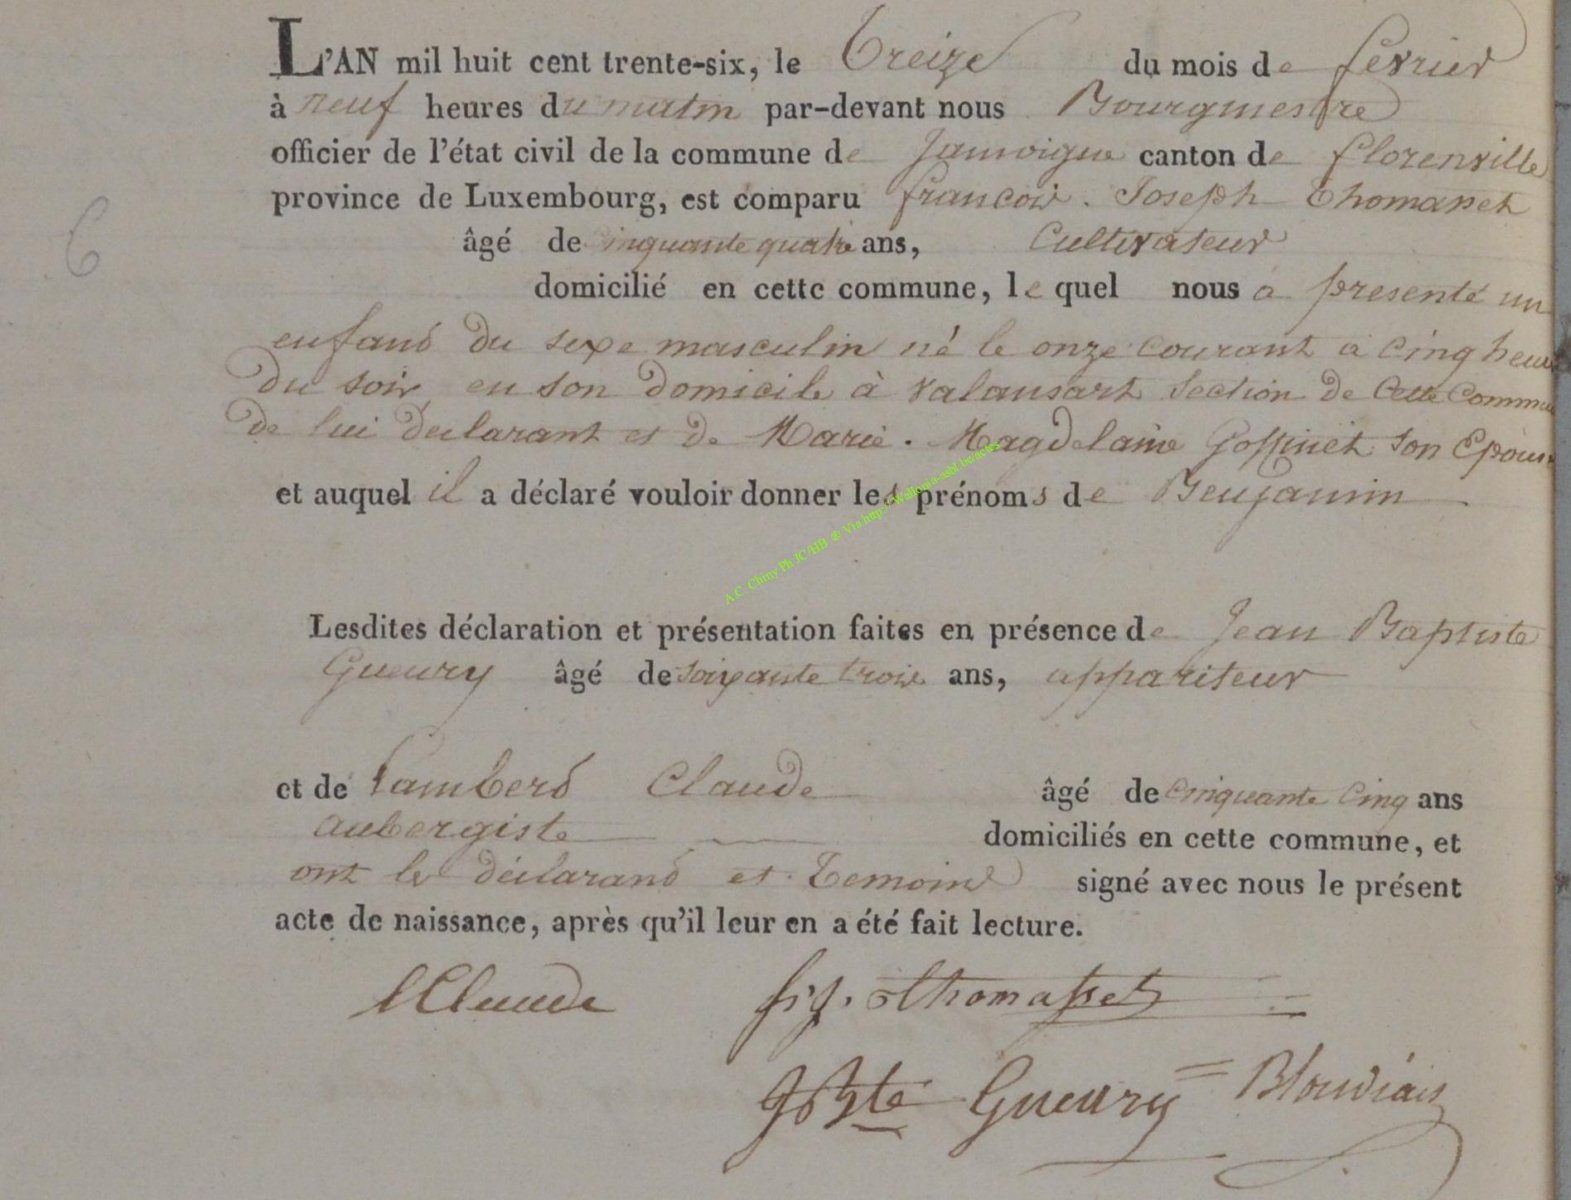 L'AN mil huit cent trente-six, le treize du mois de fevrier
à neuf heures du matin par-devant nous Bourgmestre
officier de l'état civil de la commune de Jamoigne canton de florenville
province de Luxembourg, est comparu francois. Joseph Thomasset
âgé de cinquante quatre ans, Cultivateur
6
domicilié en cette commune, le quel nous a presenté un
enfand du sexe masculin né le onze courant à cinq heures
du soir en son domicile à valansart section de cette Commune
de lui declarant et de Marie. Magdelaine Goffinet son Epouse
et auquel il a déclaré vouloir donner les prénoms de Benjamin
A.C. Chiny Ph JC/HB @ Via http://wallonia-asbl.be/actes
Lesdites déclaration et présentation faites en présence de Jean Baptiste
Gueury âgé de soixante trois ans, appariteur
et de Lamberd Claude âgé de cinquante cinq ans
aubergiste domiciliés en cette commune, et
ont le déclarand et temoins signé avec nous le présent
acte de naissance, après qu'il leur en a été fait lecture.
LClaude fs j. thomasset
JBte Gueury Blondiau